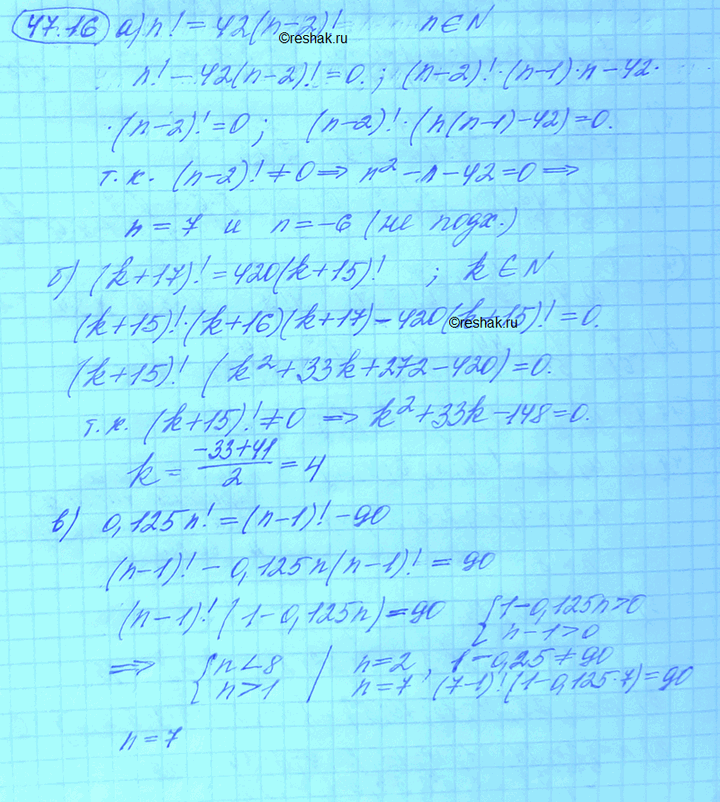 47.16 а) n! = 42(n-2)! n∈N
©reshak.ru
n! - 42(n-2)! = 0. ; (n-2)!·(n-1)·n - 42·
·(n-2)! = 0 ; (n-2)!·(n(n-1)-42) = 0.
т.к. (n-2)! ≠ 0 ⇒ n² - n - 42 = 0 ⇒
n = 7 и n = -6 (не подх.)
б) (k+17)! = 420(k+15)! ; k∈N
(k+15)!·(k+16)(k+17) - 420(k+15)! = 0.
©reshak.ru
(k+15)! (k² + 33k + 272 - 420) = 0.
т.к. (k+15)! ≠ 0 ⇒ k² + 33k - 148 = 0.
k = (-33+41)/2 = 4
в) 0,125n! = (n-1)! - 90
(n-1)! - 0,125n(n-1)! = 90
(n-1)! (1-0,125n) = 90 { 1-0,125n > 0
n-1 > 0
⇒ { n < 8 | n = 2, 1-0,25 ≠ 90
n > 1 | n = 7, (7-1)! (1-0,125·7) = 90
n = 7